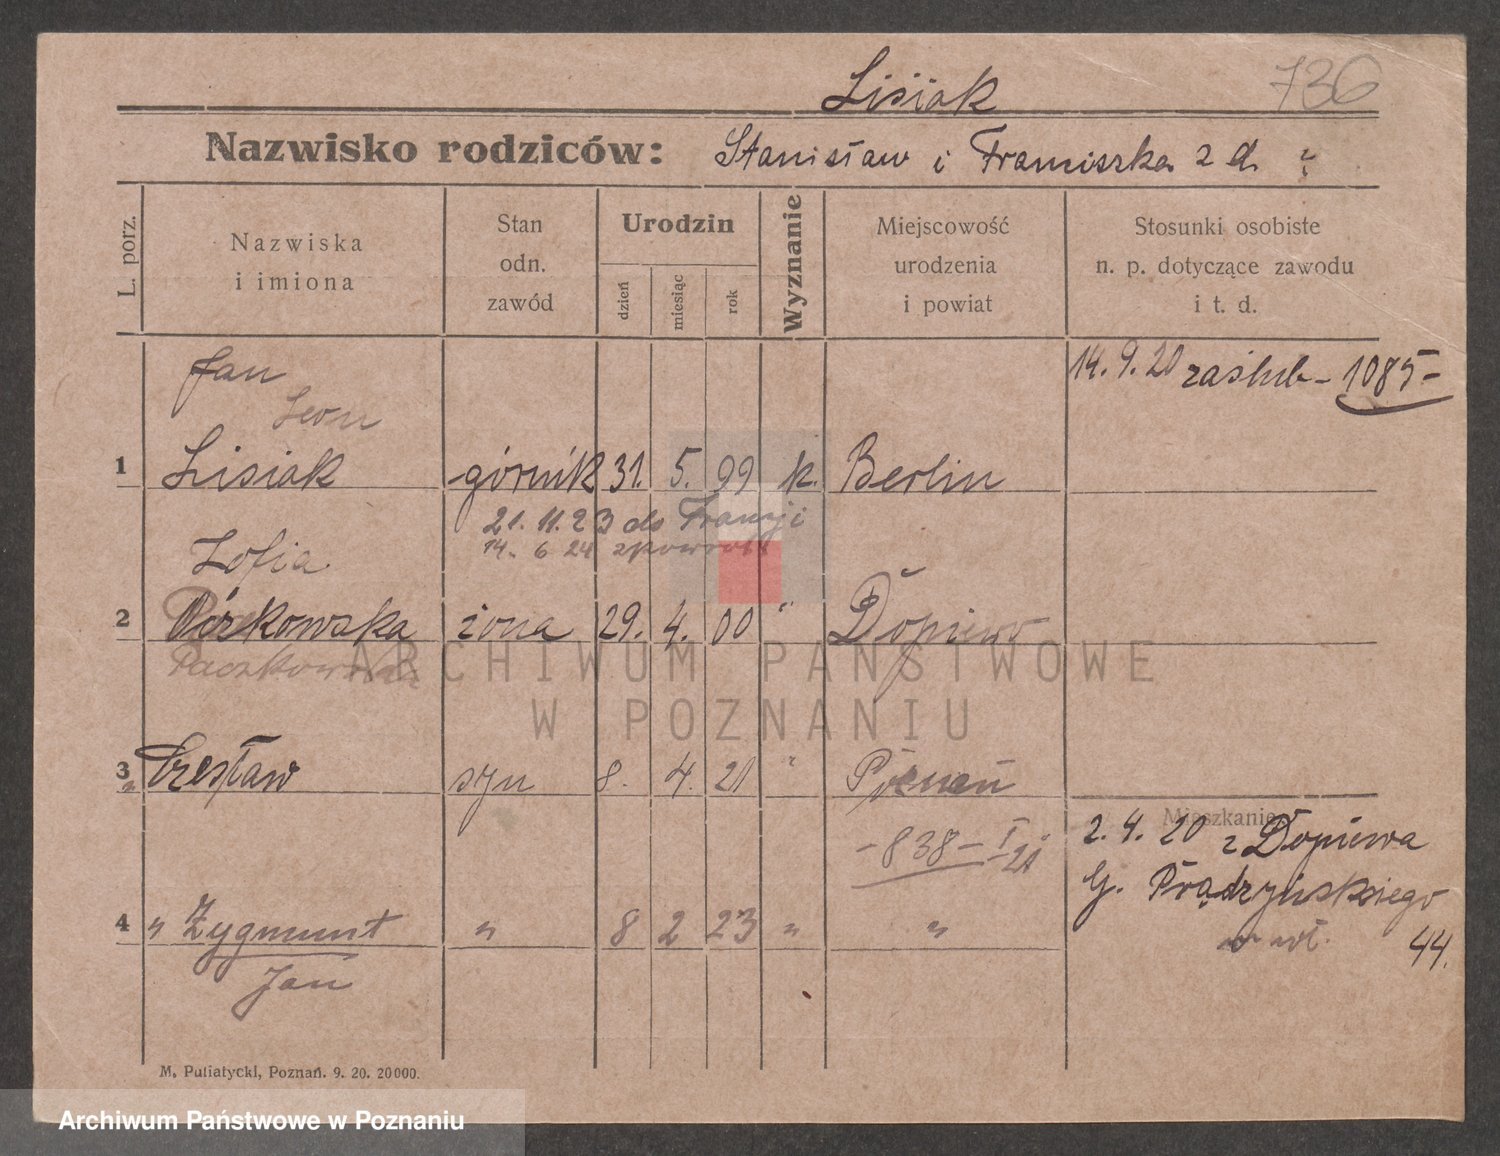 Lisiak 736
Nazwisko rodziców: Stanisław i Franciszka z d. ?
L. porz.
Nazwiska i imiona
Stan odn. zawód
Urodzin
dzień
miesiąc
rok
Wyznanie
Miejscowość urodzenia i powiat
Stosunki osobiste n. p. dotyczące zawodu i t. d.
14. 9. 20 zaślub – 1085 –
Jan
Leon
1 Lisiak górnik 31. 5. 99 k. Berlin
21. 11. 23 do Francji
14. 6 24 zpowrotem
Zofia
2 żona 29. 4. 00 " Dopiewo
Paczkowska
3 " Czesław syn 8. 4. 21 " Poznań
Mieszkanie:
– 838 – I 21
2. 4. 20 z Dopiewa
G. Prądzyńskiego
44.
4 " Zygmunt " 8 2 23 " "
Jan
M. Putiatycki, Poznań. 9. 20. 20000.
ARCHIWUM PAŃSTWOWE
W POZNANIU
Archiwum Państwowe w Poznaniu